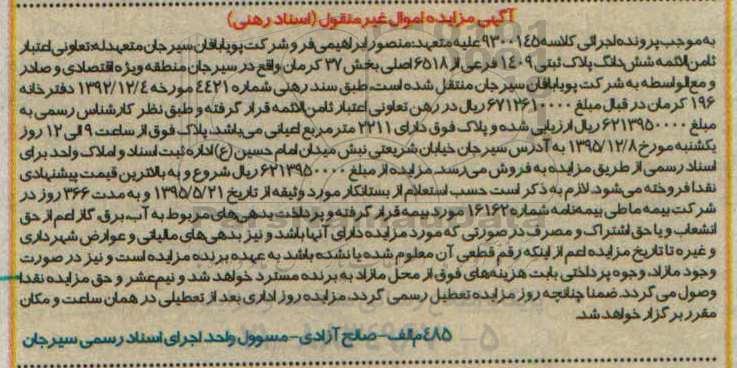 آگهی مزایده اموال غیر منقول (اسناد رهنی)
به موجب پرونده اجرائی کلاسه ۹۳۰۰۱۴۵ علیه متعهد: منصور ابراهیمی فر و شرکت پویابافان سیرجان متعهدله: تعاونی اعتبار
ثامن الائمه ششدانگ پلاک ثبتی ۱۴۰۹ فرعی از ۶۵۱۸ اصلی بخش ۳۷ کرمان واقع در سیرجان منطقه ویژه اقتصادی و صادر
و مع الواسطه به شرکت پویابافان سیرجان منتقل شده است. طبق سند رهنی شماره ۴۴۲۱ مورخه ۱۳۹۲/۱۲/۴ دفترخانه
۱۹۶ کرمان در قبال مبلغ ۶۷۱۲۶۱۰۰۰۰ ریال در رهن تعاونی اعتبار ثامن الائمه قرار گرفته و طبق نظر کارشناس رسمی به
مبلغ ۶۲۱۳۹۵۰۰۰۰ ریال ارزیابی شده و پلاک فوق دارای ۲۲۱۱ مترمربع اعیانی می‌باشد. پلاک فوق از ساعت ۹ الی ۱۲ روز
یکشنبه مورخ ۱۳۹۵/۱۲/۸ به آدرس سیرجان خیابان شریعتی نبش میدان امام حسین (ع) اداره ثبت اسناد و املاک واحد برای
اسناد رسمی از طریق مزایده به فروش می‌رسد. مزایده از مبلغ ۶۲۱۳۹۵۰۰۰۰ ریال شروع و به بالاترین قیمت پیشنهادی
نقدا فروخته می‌شود. لازم به ذکر است حسب استعلام از بستانکار مورد وثیقه از تاریخ ۱۳۹۵/۵/۲۱ و به مدت ۳۶۶ روز در
شرکت بیمه ما طی بیمه‌نامه شماره ۱۶۱۶۲ مورد بیمه قرار گرفته و پرداخت بدهی‌های مربوط به آب، برق، گاز اعم از حق
انشعاب و یا حق اشتراک و مصرف در صورتی که مورد مزایده دارای آنها باشد و نیز بدهی‌های مالیاتی و عوارض شهرداری
و غیره تا تاریخ مزایده اعم از اینکه رقم قطعی آن معلوم شده یا نشده باشد به عهده برنده مزایده است و نیز در صورت
وجود مازاد، وجوه پرداختی بابت هزینه‌های فوق از محل مازاد به برنده مسترد خواهد شد و نیم‌عشر و حق مزایده نقدا
وصول می‌گردد. ضمنا چنانچه روز مزایده تعطیل رسمی گردد، مزایده روز اداری بعد از تعطیلی در همان ساعت و مکان
مقرر برگزار خواهد شد.
۴۸۵ م‌الف - صالح آزادی - مسوول واحد اجرای اسناد رسمی سیرجان